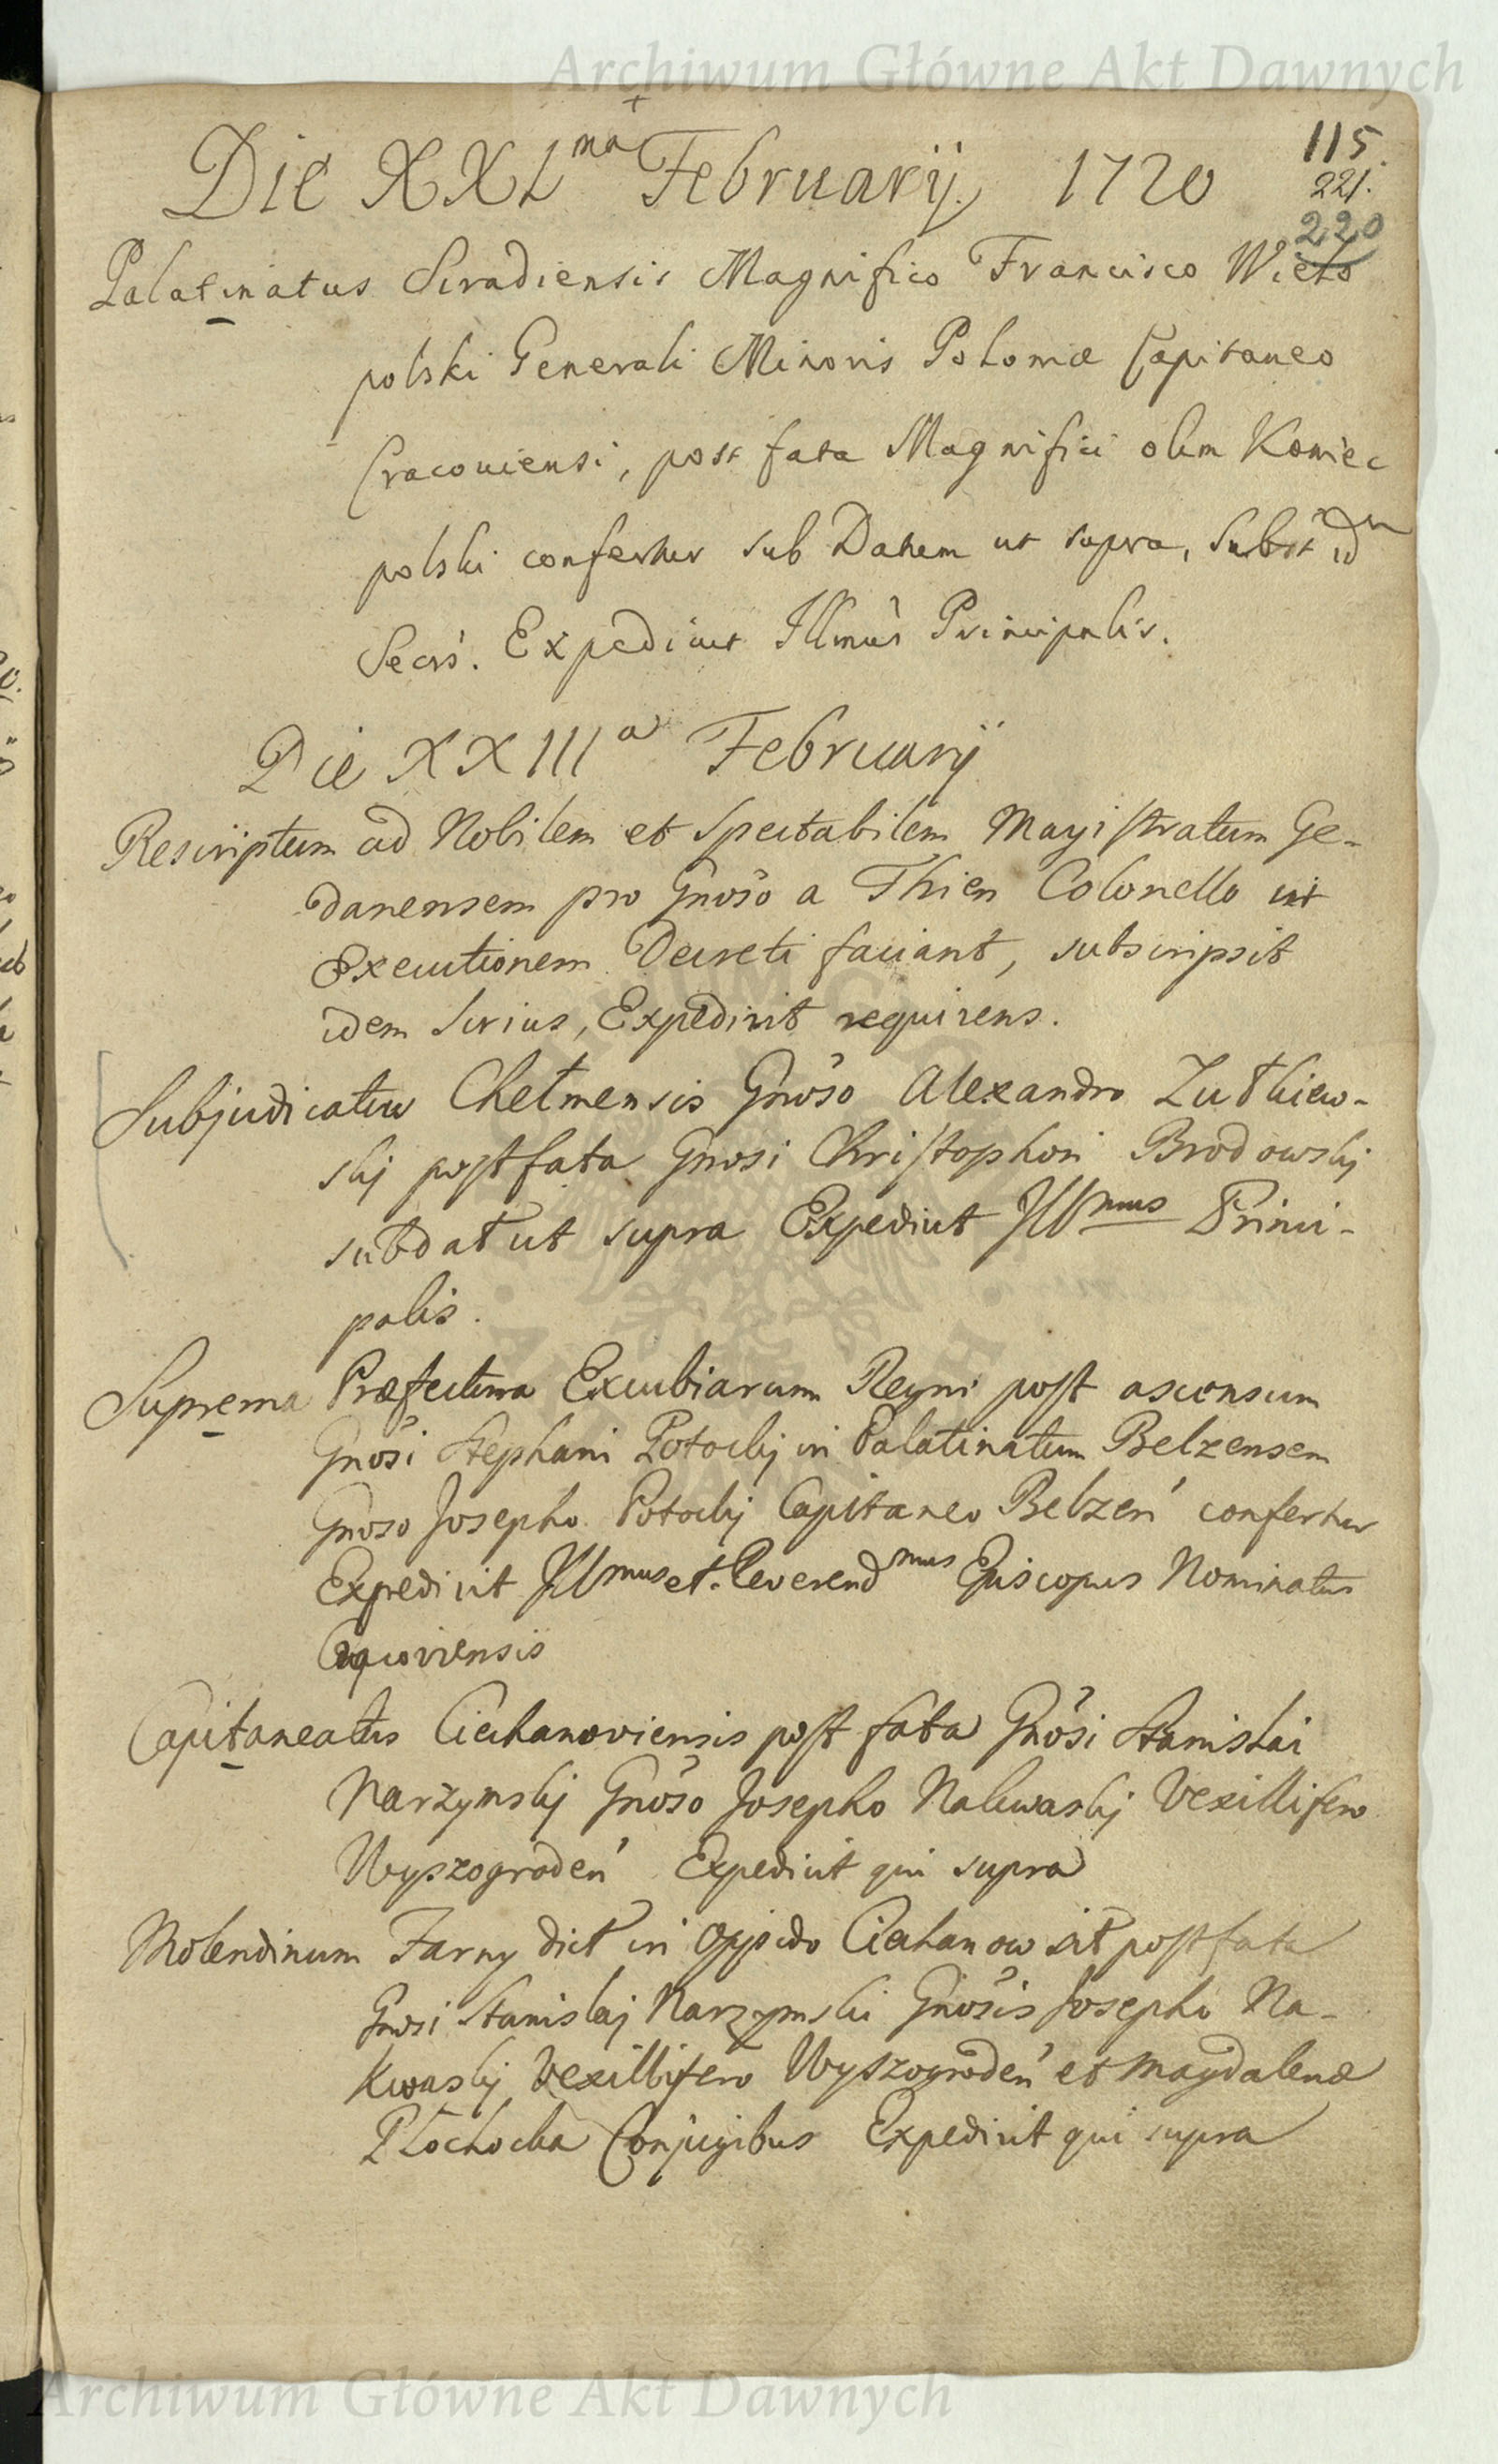 Archiwum Główne Akt Dawnych
115.
Die XXI mâ Februarij. 1720
221.
220
Palatinatus Siradiensis Magnifico Francisco Wielo
polski Generali Minoris Poloniæ Capitaneo
Cracouiensi, post fata Magnifici olim Koniec
polski confertur sub Datem ut supra, Subst id m
Secrs. Expediuit Illmus Principalis.
Die XXIII a Februarij
Rescriptum ad Nobilem et Spectabilem Magistratum Ge-
danensem pro Gnoso a Thien Colonello ut
Executionem Decreti faciant, subscripsit
idem Scrius, Expedivit requirens.
Subjudicatus Chełmensis Gnoso Alexandro Zułkiew-
skj post fata Gnosi Christophori Brodowskj
sub dat ut supra Expediuit Illmus Princi-
palis.
Suprema Præfectura Excubiarum Regni post ascensum
Gnosi Stephani Potockj in Palatinatum Belzensem
Gnoso Josepho Potockj Capitaneo Belzen confertur
Expedivit Illmus et Reverend mus Episcopus Nominatus
Cracoviensis
Capitaneatus Ciechanoviensis post fata Gnosi Stanislai
Narzymskj Gnoso Josepho Nakwaskj Vexillifero
Wyszogroden Expediuit qui supra
Molendinum Farny dict in Oppido Ciechanow sit post fata
Gnosi Stanislaj Narzymski Gnosis Josepho Na-
kwaskj Vexillifero Wyszogroden et Magdalenæ
Płochocka Conjugibus Expedivit qui supra
Archiwum Główne Akt Dawnych